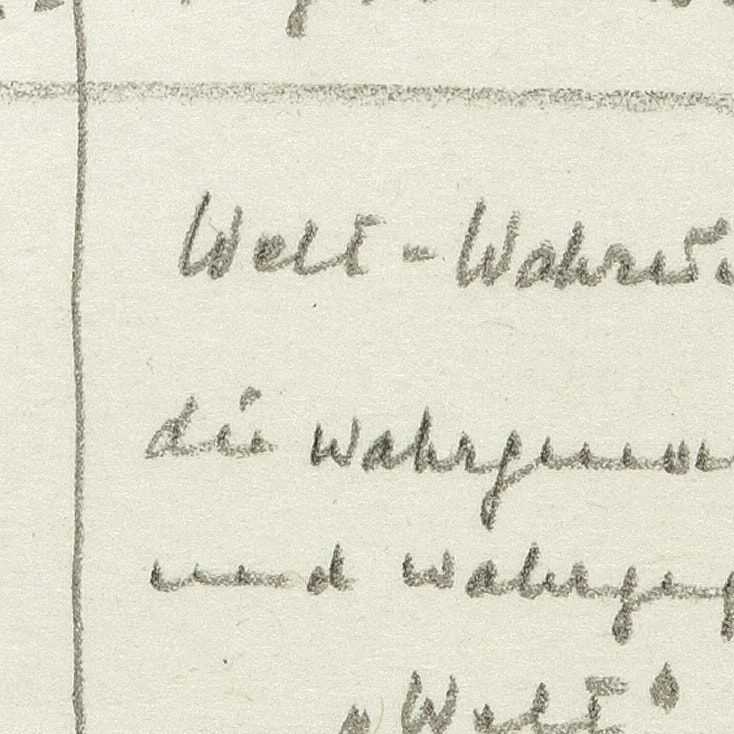 Welt - Wahrn
die wahrgenom
und wahrge
"Welt"